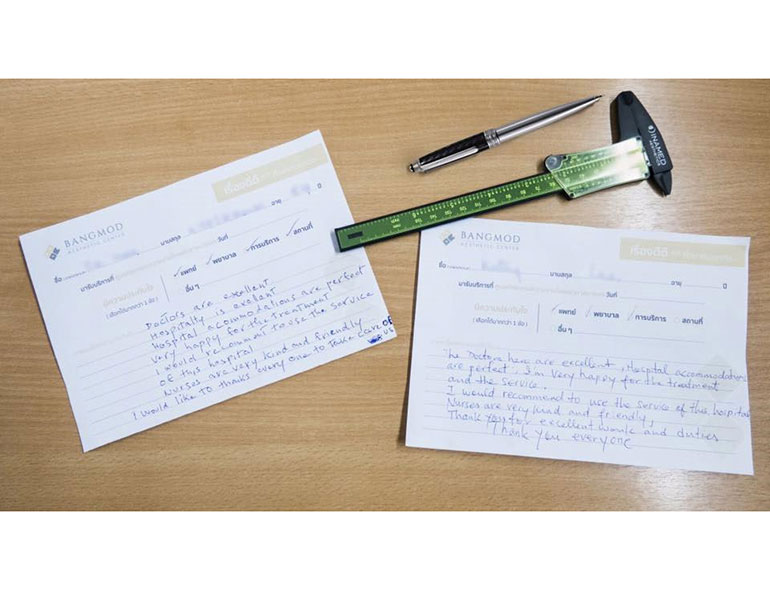 BANGMOD
AESTHETIC CENTER
เรื่องดีดี
ชื่อ
นามสกุล
อายุ
ปี
มารับบริการที่
วันที่
มีความประทับใจ
(เลือกได้มากกว่า 1 ข้อ)
แพทย์ พยาบาล การบริการ สถานที่
อื่น ๆ
Doctors are excellent
Hospitality is exelant
Hospital accomodations are perfect
Very happy for the treatment
I would recommit to use the service
of this hospital
Nurses are very Kind and friendly
I would like to thanks every one to Take care OF
US
INAMED
AESTHETICS
BANGMOD
AESTHETIC CENTER
เรื่องดีดี
ชื่อ
นามสกุล
อายุ
ปี
มารับบริการที่
วันที่
มีความประทับใจ
(เลือกได้มากกว่า 1 ข้อ)
แพทย์ พยาบาล การบริการ สถานที่
อื่น ๆ
The Doctors here are excellent, Hospital accommodations
are perfect. I'm very happy for the treatment
and the service.
I would recommend to use the service of the hospital
Nurses are very kind and friendly,
Thank you for excellent work and duties
Thank you everyone